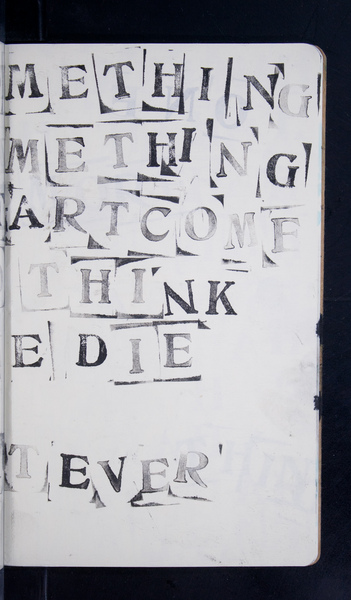 METHING
METHING
ARTCOME
THINK
E DIE
T EVER'